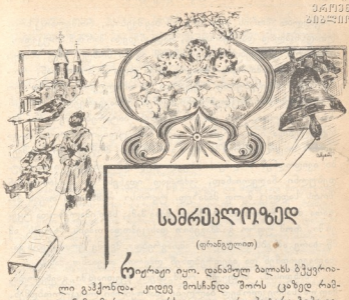 ეროვნ
ბიბლიო
სამრეკლოზედ
(ფრანგულით)
რიჟრაჟი იყო. დანამულ ბალახს ბჰყვრია-
ლი გაჰქონდა. კიდევ მოსჩანდა შორს ცაზედ რამ-